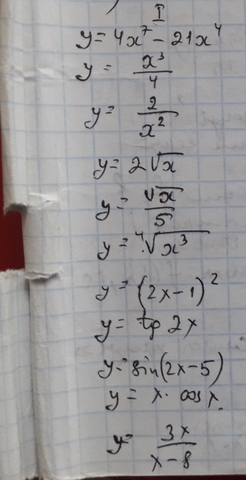 I
y = 4x⁷ - 21x⁴
y = x³/4
y = 2/x²
y = 2√x
y = √x/5
y = ⁴√x³
y = (2x-1)²
y = tg 2x
y = sin(2x-5)
y = x · cos x.
y = 3x/(x-8)